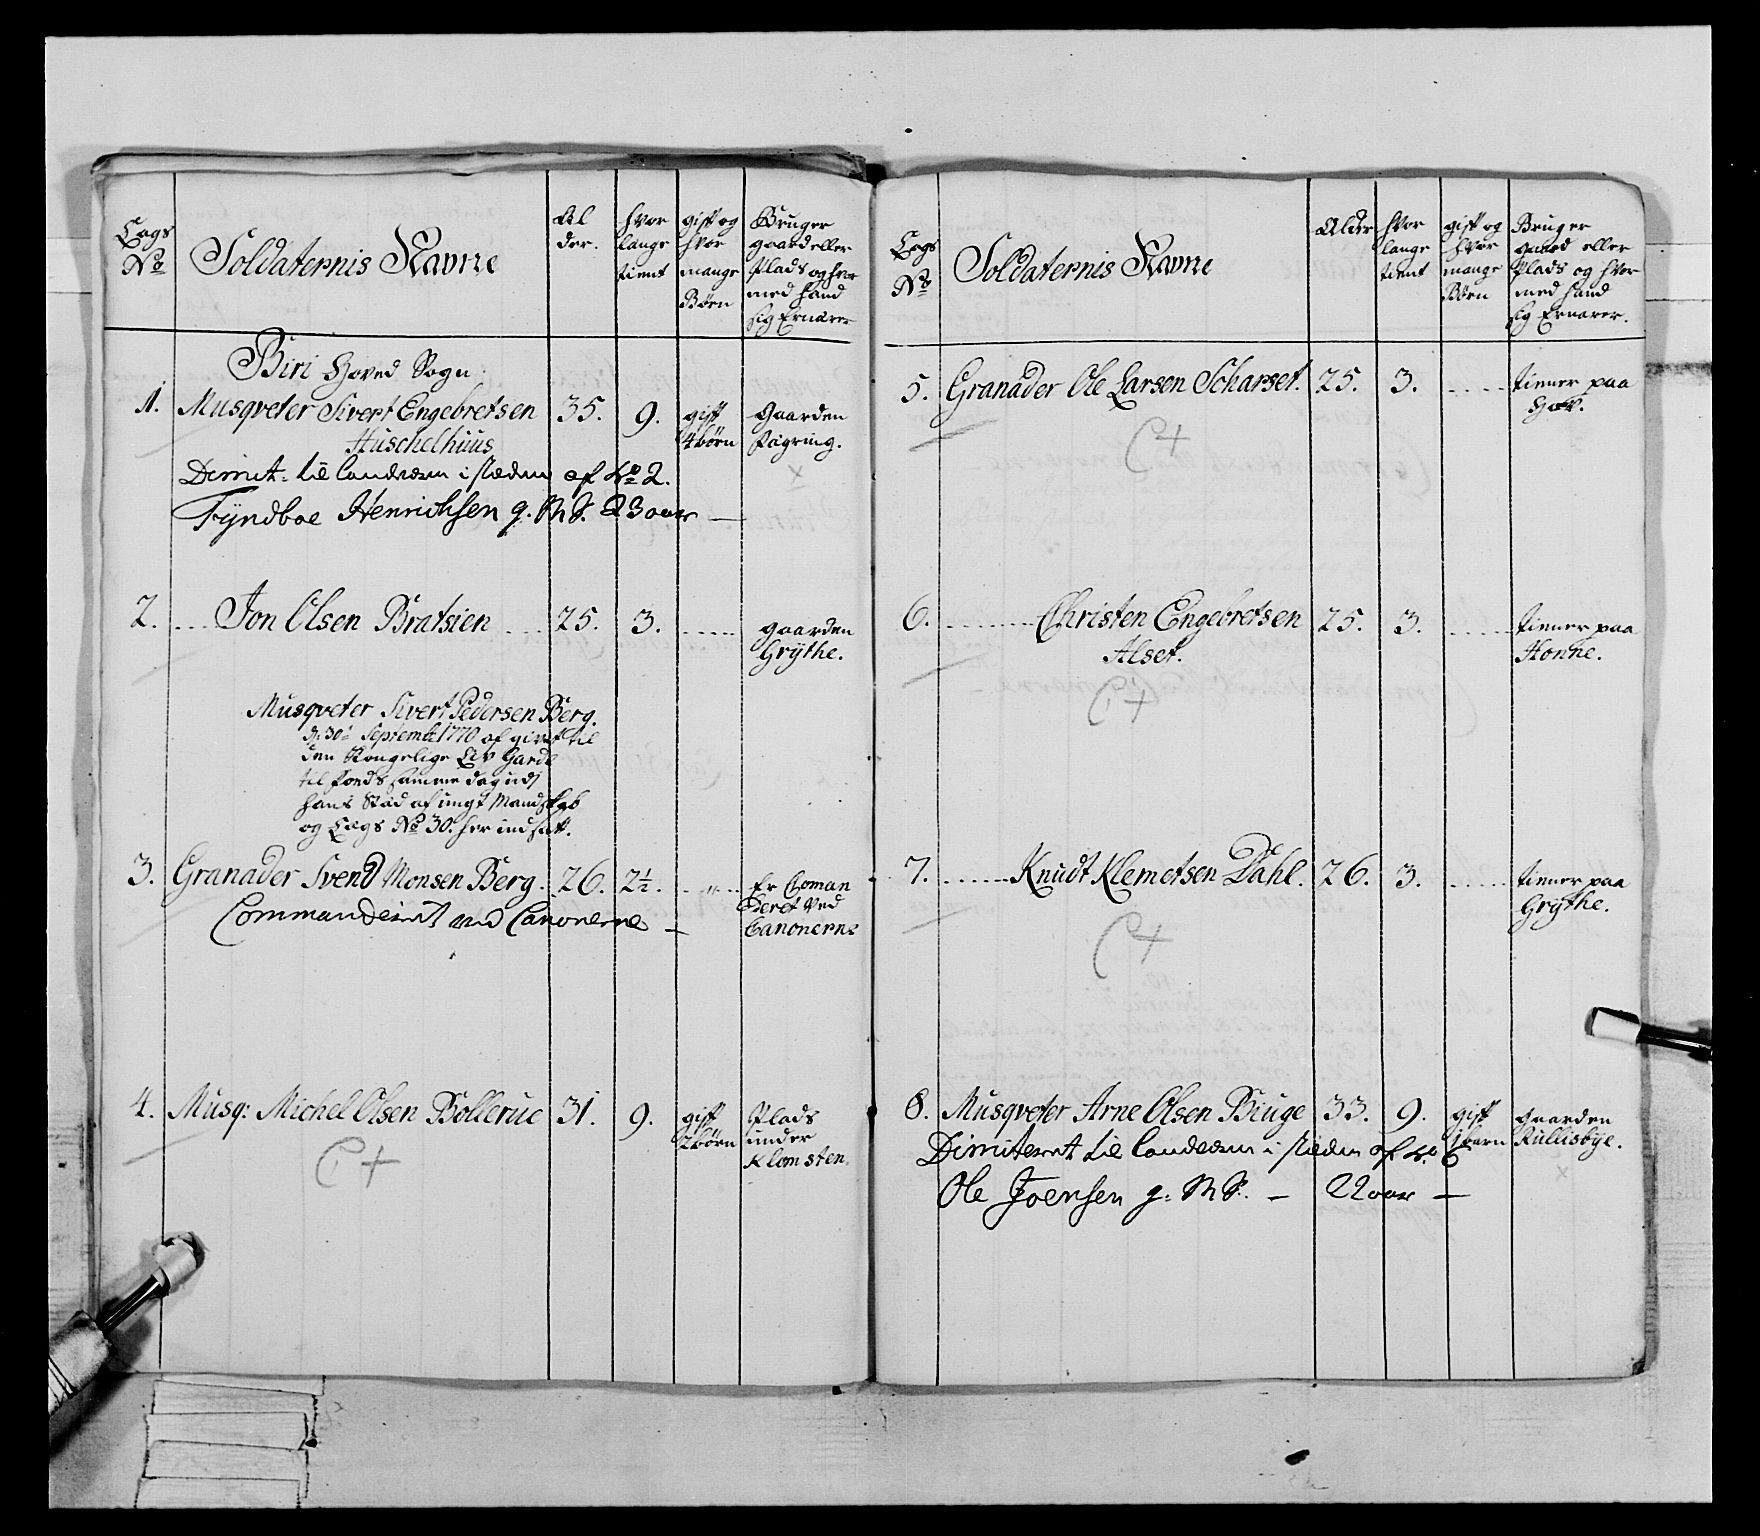 Lags No
Soldaternis Navne
Al der.
hvor lange tient
gift og hvor mange Børn
Bruger gaard eller Plads og hvor med hand sig Ernærer
Biri Hoved Sogn.
1. Musqveter Sivert Engebretsen 35. 9. gift Gaarden
Huschelhuus 4 børn Pagring.
Dimit: til landværn i stæden af No 2.
Tÿndboe Henrichsen g. M S. 23 aar —
2. .... Jon Olsen Bratsien .... 25. 3. ...... gaarden
Grÿthe.
Musqveter Sivert Pedersen Berg.
d: 30te Septembr 1770 af givet til
den Kongelige Liv Garde
til Fods samme dag udj
hans Stæd af ungt Mandskab
og Lags No 30. her indsatt.
3. Granader Svend Monsen Berg. 26. 2½. ..... Er Coman
Commanderet ved Canonerne — deret Ved
Canonerne
4. Musq: Michel Olsen Bollerue 31. 9. gift Plads
2 børn under
Klomsten.
C+
Lags No
Soldaternis Navne
Alder
hvor lange tient
gift og hvor mange Børn
Bruger gaard eller Plads og hvor med hand sig Ernærer.
5. Granader Ole Larsen Scharset. 25. 3. ..... tiener paa
Hov.
C+
6. ......... Christen Engebretsen 25. 3. ...... tiener paa
Alset. Honne.
C+
7. ....... Knudt Klemetsen Dahl. 26. 3. ...... tiener paa
Grÿthe.
C+
8. Musqveter Arne Olsen Biuge 33. 9. gift Gaarden
1 barn Kullisbÿe.
Dimiteret til landværn i stæden af No 6
Ole Joensen g: M S. — 22 aar —